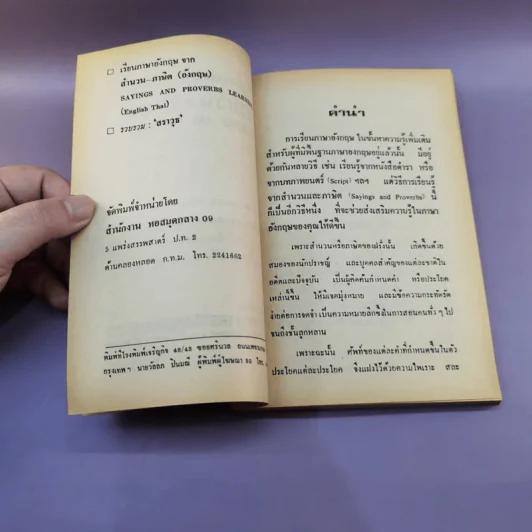 □ เรียนภาษาอังกฤษ จาก
สำนวน-ภาษิต (อังกฤษ)
SAYINGS AND PROVERBS
(English Thai)
□ รวบรวม : "สราวุธ"
จัดพิมพ์จำหน่ายโดย
สำนักงาน หอสมุดกลาง 09
5 แพร่งสรรพศาสตร์ ป.ท. 2
ด้านคลองหลอด ก.ท.ม. โทร. 2241682
พิมพ์ที่โรงพิมพ์เจริญกิจ 42/43 ซอยศรีนวล
กรุงเทพฯ นายวัลลภ ปิ่นมณี ผู้พิมพ์ผู้โฆษณา
คำนำ
การเรียนภาษาอังกฤษ ในขั้นหาความรู้เพิ่มเติม
สำหรับผู้ที่มีพื้นฐานภาษาอังกฤษอยู่แล้วนั้น มีอยู่
ด้วยกันหลายวิธี เช่น เรียนรู้จากหนังสือตำรา หรือ
จากบทภาพยนตร์ (Script) ฯลฯ แต่วิธีการเรียนรู้
จากสำนวนและภาษิต (Sayings and Proverbs) นี้
ก็เป็นอีกวิธีหนึ่ง ที่จะช่วยส่งเสริมความรู้ในภาษา
อังกฤษของคุณให้ดีขึ้น
เพราะสำนวนหรือภาษิตของฝรั่งนั้น เกิดขึ้นด้วย
สมองของนักปราชญ์ และบุคคลสำคัญของแต่ละชาติใน
อดีตและปัจจุบัน เป็นผู้คิดค้นกำหนดคำ หรือประโยค
เหล่านี้ขึ้น ให้มีเจตมุ่งหมาย และมีข้อความกระทัดรัด
ง่ายต่อการจดจำ เป็นความหมายลึกซึ้งในการสอนคนทั่ว ๆ ไป
จนถึงชั้นลูกหลาน
เพราะฉะนั้น ศัพท์ของแต่ละคำที่กำหนดขึ้นในตัว
ประโยคแต่ละประโยค จึงแฝงไว้ด้วยความไพเราะ สละ